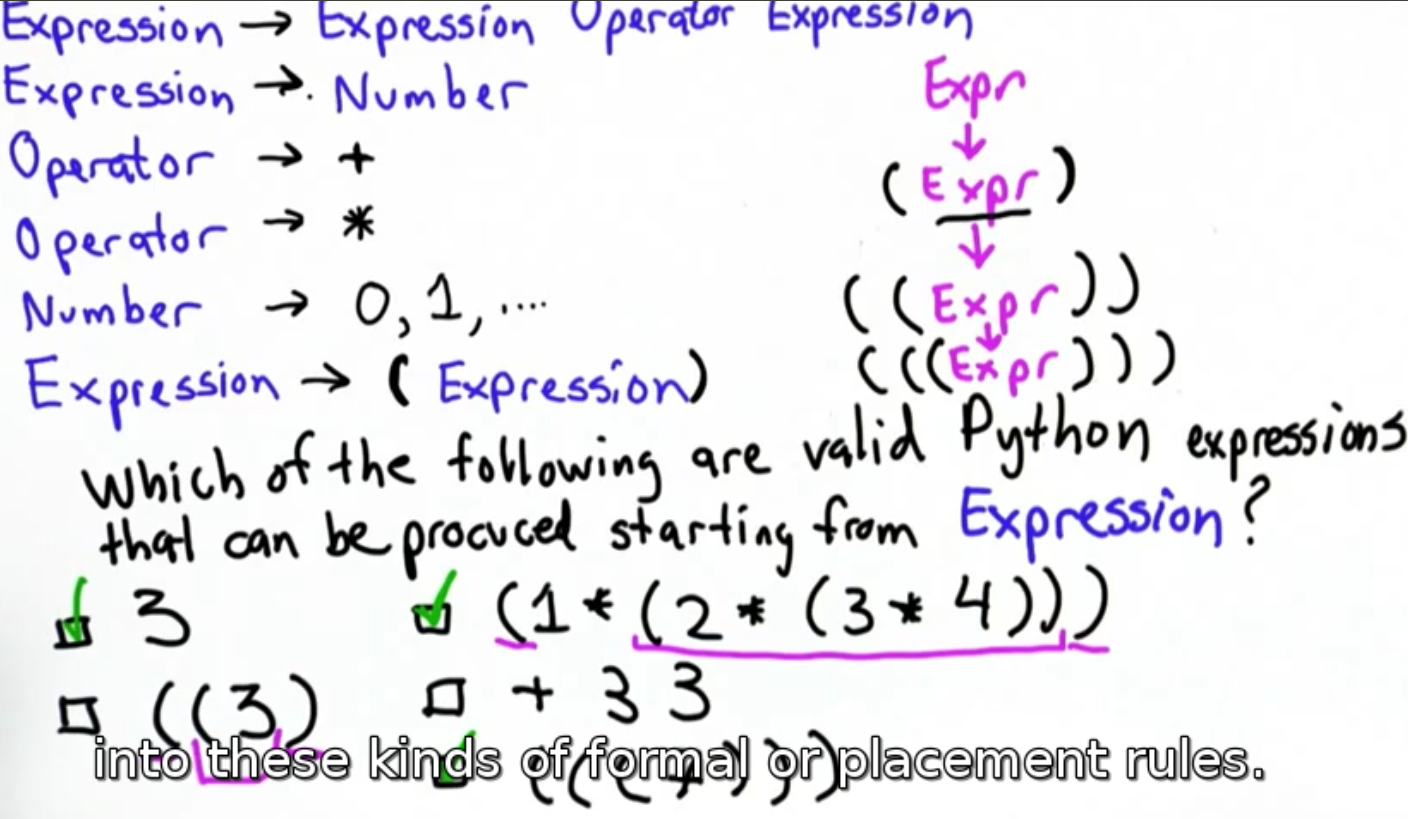 Expression → Expression Operator Expression
Expression → Number
Operator → +
Operator → *
Number → 0, 1, ....
Expression → ( Expression)
Expr
( Expr )
( ( Expr ) )
( ( ( Expr ) ) )
Which of the following are valid Python expressions
that can be procuced starting from Expression?
3
(1 * (2 * (3 * 4)))
((3)
+ 3 3
into these kinds of formal or placement rules.